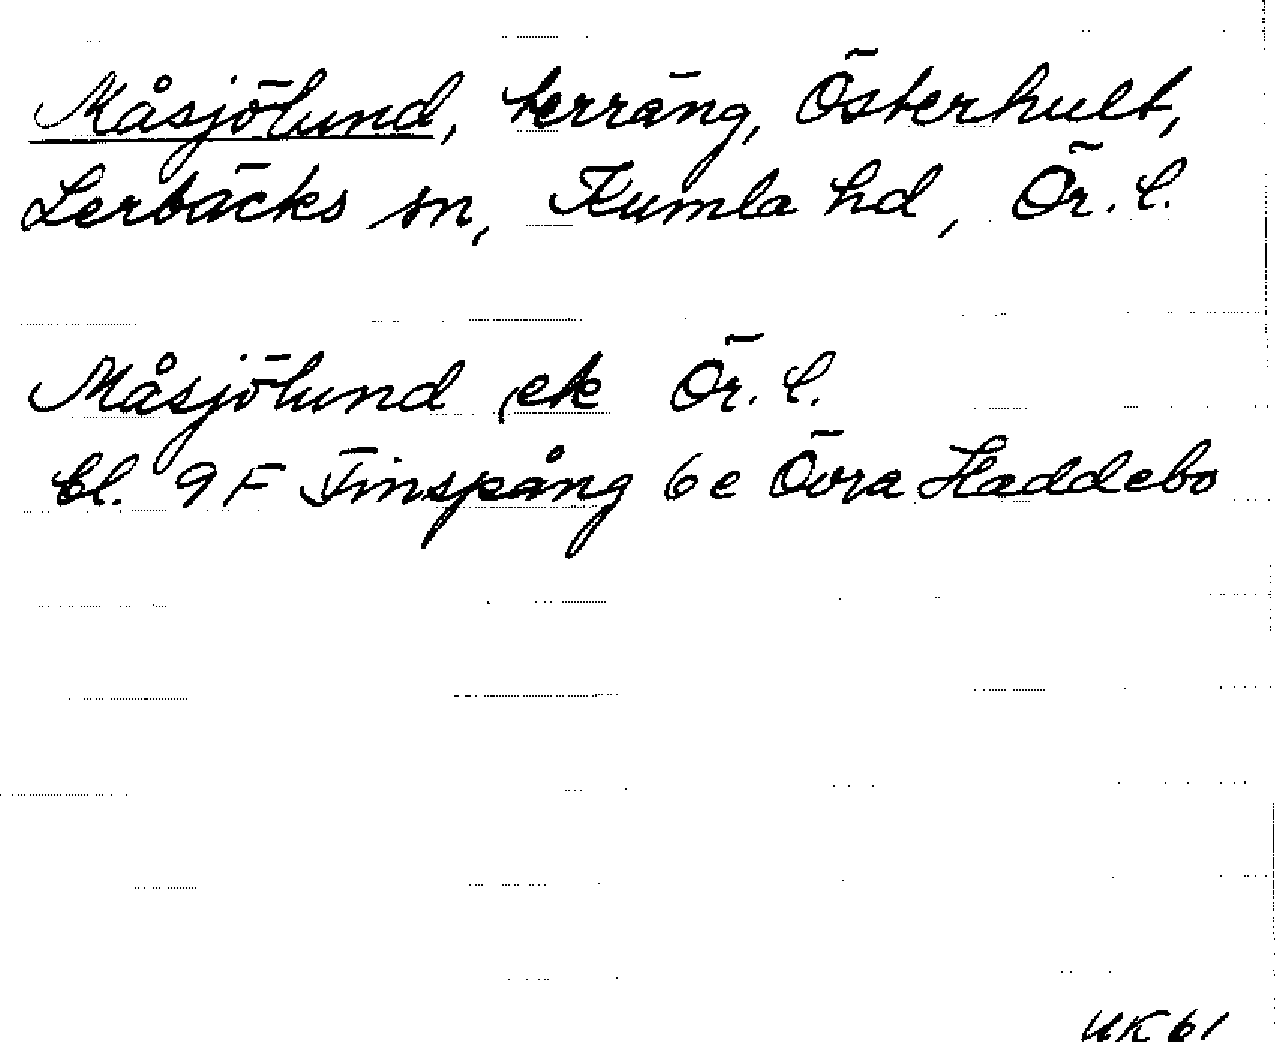 Måsjölund, terräng, Österhult,
Lerbäcks sn, Kumla hd, Ör. l.
Måsjölund ek Ör. l.
bl. 9 F Finspång 6 e Övra Haddebo
UK 61